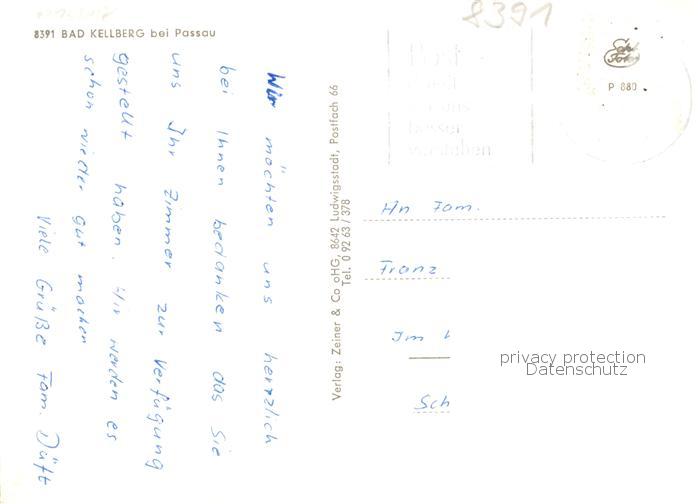 8391
8391 BAD KELLBERG bei Passau
Wir möchten uns herzlich
bei Ihnen bedanken das Sie
uns Ihr Zimmer zur Verfügung
gestellt haben. Wir werden es
schon wieder gut machen
Viele Grüße Fam. Däft
Verlag: Zeiner & Co oHG, 8642 Ludwigsstadt, Postfach 66
Tel. 0 92 63 / 378
Post
besser
P 880
An Fam.
Franz
Im
Sch
privacy protection
Datenschutz